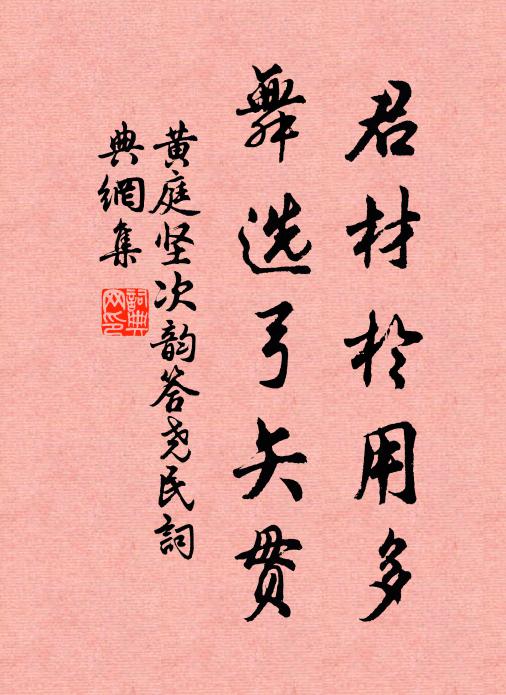 君材於用多
舞选弓矢贯
黄庭坚次韵答尧民詞
典網集
詞典網印